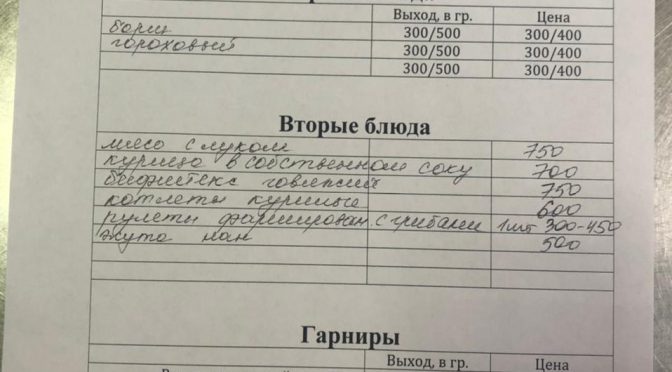 Выход, в гр. Цена
борщ 300/500 300/400
гороховый 300/500 300/400
300/500 300/400
Вторые блюда
мясо с луком 750
курица в собственном соку 700
бифштекс говяжий 750
котлеты куриные 600
рулеты фарширован. с грибами 1шт 300-450
жута нан 500
Гарниры
Выход, в гр. Цена